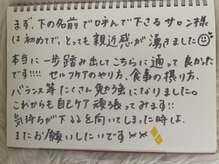 まず、下の名前で呼んで下さるサロン様
は初めてで、とっても親近感が湧きました
本当に一歩踏み出してこちらに通って良かった
です!!! セルフケアのやり方、食事の摂り方、
バランス等 たくさん勉強になりました。
これからも自己ケア頑張ってみます!!
気持ちが下を向いてしまった時は、
またお願いしたいです